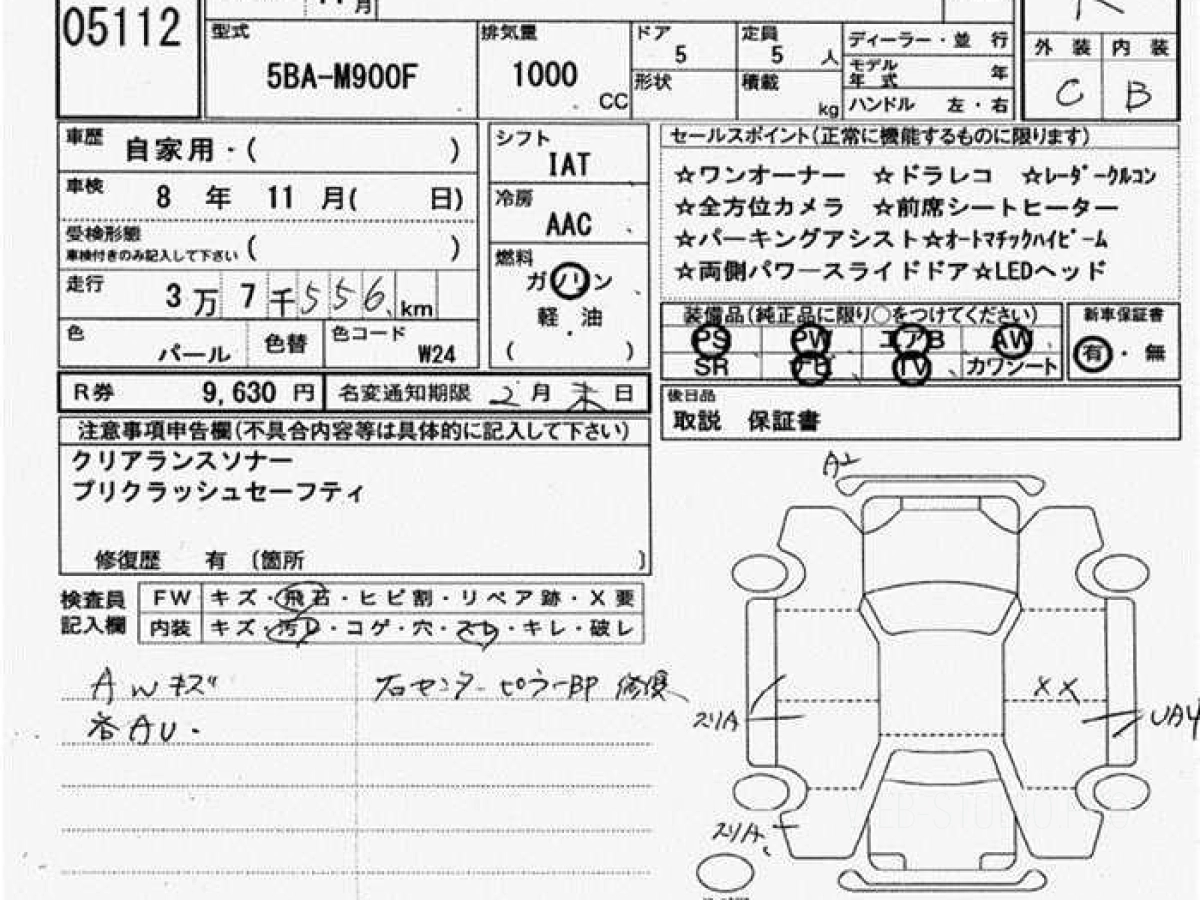 月
05112
型式 5BA-M900F
排気量 1000 CC
ドア 5
定員 5 人
形状
積載 kg
ディーラー・並 行
モデル年式 年
ハンドル 左・右
外装 内装
C B
車歴 自家用・( )
車検 8 年 11 月( 日)
受検形態
車検付きのみ記入して下さい ( )
走行 3万7千556 km
色 パール 色替 色コード W24
シフト
IAT
冷房
AAC
燃料
ガソリン
軽・油
( )
セールスポイント(正常に機能するものに限ります)
☆ワンオーナー ☆ドラレコ ☆レーダークルコン
☆全方位カメラ ☆前席シートヒーター
☆パーキングアシスト☆オートマチックハイビーム
☆両側パワースライドドア☆LEDヘッド
装備品(純正品に限り○をつけてください)
PS PW エアB AW
SR ナビ TV カワシート
新車保証書
有・無
R券 9,630 円 名変通知期限 2 月 末 日
後日品
取説 保証書
注意事項申告欄(不具合内容等は具体的に記入して下さい)
クリアランスソナー
プリクラッシュセーフティ
修復歴 有 〔箇所 〕
検査員記入欄
FW キズ・飛石・ヒビ割・リペア跡・X要
内装 キズ・汚レ・コゲ・穴・スレ・キレ・破レ
AWキズ
各AU.
右センターピラーBP 修復
A2
スリA
XX
UA4
スリA